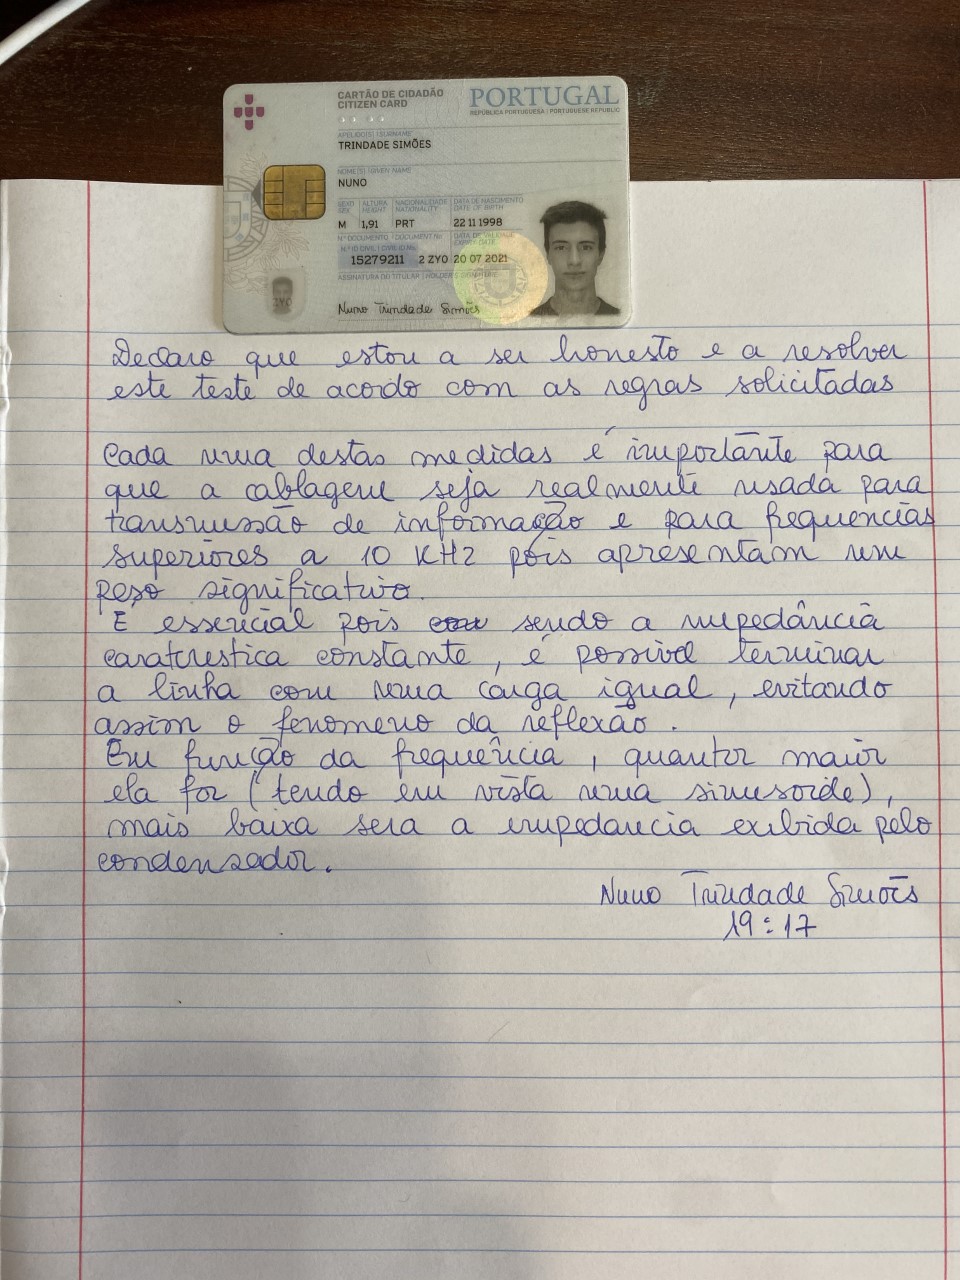 CARTÃO DE CIDADÃO
CITIZEN CARD
PORTUGAL
REPÚBLICA PORTUGUESA | PORTUGUESE REPUBLIC
APELIDO(S) | SURNAME
TRINDADE SIMÕES
NOME(S) | GIVEN NAME
NUNO
SEXO ALTURA NACIONALIDADE DATA DE NASCIMENTO
SEX HEIGHT NATIONALITY DATE OF BIRTH
M 1,91 PRT 22 11 1998
Nº DOCUMENTO | DOCUMENT No. DATA DE VALIDADE
EXPIRY DATE
15279211 2 ZY0 20 07 2021
ASSINATURA DO TITULAR | HOLDER'S SIGNATURE
Nuno Trindade Simões
Declaro que estou a ser honesto e a resolver
este teste de acordo com as regras solicitadas
Cada uma destas medidas é importante para
que a cablagem seja realmente usada para
transmissão de informação e para frequencias
superiores a 10 KHz pois apresentam um
peso significativo.
E essencial pois sendo a impedância
caratcrestica constante, é possivel terminar
a linha com uma carga igual, evitando
assim o fenomeno da reflexão.
Em função da frequência, quantor maior
ela for (tendo em vista uma sinusoide),
mais baixa sera a impedancia exibida pelo
condensador.
Nuno Trindade Simões
19:17